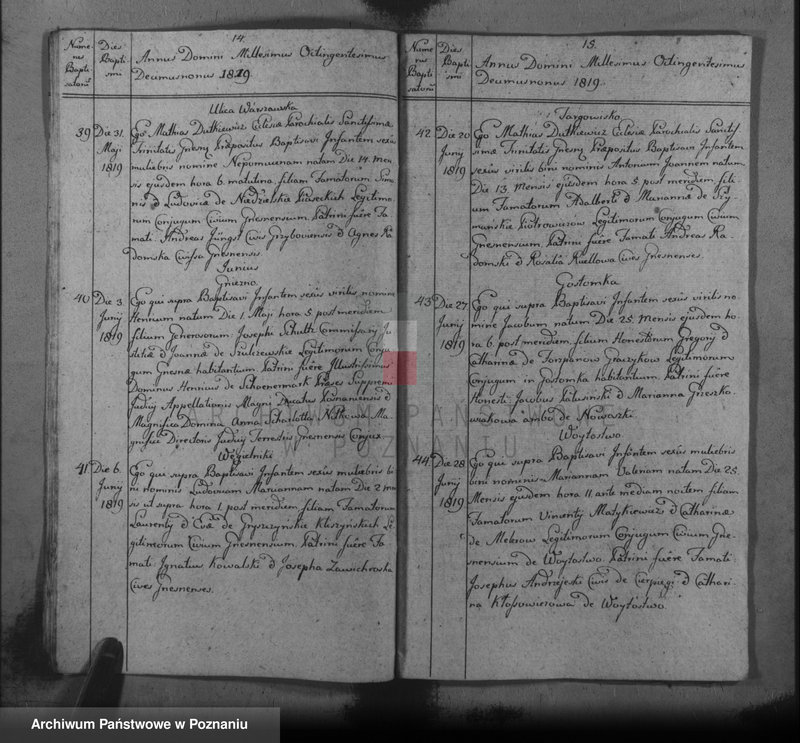 14.
Nume
rus
Bapti
satorū
Dies
Bapti
smi
Annus Domini Millesimus Octingentesimus
Decimusnonus 1819.
Ulica Warszawska
39 Die 31. Ego Mathias Dutkiewicz Ecclesiæ Parochialis Sanctissimæ
Maji Trinitatis Gnesnæ Præpositus Baptisavi Infantem sexus
1819 muliebris nomine Nepomucenam natam Die 14. men
sis ejusdem hora 6. matutina, filiam Famatorum Simo
nis & Ludovica de Niedzielska Piaseckich Legitimo
rum Conjugum Civium Gnesnensium. Patrini fuêre Fa
mati Andreas Jüngst Civis Grzyboviensis & Agnes Ra
domska Civissa Gnesnensis
Junius
Gniezno
40 Die 3. Ego qui supra Baptisavi Infantem sexûs virilis nomine
Junij natum Die 1. Maji hora 5. post meridiem
1819 filium Generosorum Josephi Schultz Commissarij Ju
stitiæ & Joannæ de Szulczewskie Legitimorum Conju
gum Gnesnæ habitantium. Patrini fuêre Illustrissimus
Dominus Henricus de Schoenermark Præses Supremi
Judicij Appellationis Magni Ducatus Posnaniensis &
Magnifica Domina Anna Scharlotta Nitkowa Ma
gnifici Directoris Judicij Terrestris Gnesnensis Conjux.
Węgielniki
41 Die 6. Ego qui supra Baptisavi Infantem sexûs muliebris bi
Junij ni nominis Ludovicam Mariannam natam Die 2. men
1819 sis ut supra hora 1. post meridiem filiam Famatorum
Laurenty & Evæ de Gryszczyńskie Kleszyńskich Le
gitimorum Civium Gnesnensium. Patrini fuêre Fa
mati Ignatius Kowalski & Josepha Zawichroska
Cives Gnesnenses.
15.
Nume
rus
Bapti
satorū
Dies
Bapti
smi
Annus Domini Millesimus Octingentesimus
Decimusnonus 1819.
Targowisko
42 Die 20 Ego Mathias Dutkiewicz Ecclesiæ Parochialis Sanctis
Junij simæ Trinitatis Gnesnæ Præpositus Baptisavi Infantem
1819 sexûs virilis bini nominis Antonium Joannem natum
Die 13. Mensis ejusdem hora 5. post meridiem fili
um Famatorum Adalberti & Mariannæ de Szy
manskie Piotrowiczow Legitimorum Conjugum Civium
Gnesnensium. Patrini fuêre Famati Andreas Ra
domski & Rosalia Kuellowa Cives Gnesnenses.
Gostomka
43 Die 27. Ego qui supra Baptisavi Infantem sexûs virilis no
Junij mine Jacobum natum Die 25. Mensis ejusdem ho
1819 ra 6. post meridiem, filium Honestorum Gregory &
Catharinæ de Legitimorum
Conjugum in Gostomka habitantium. Patrini fuêre
Honesti Jacobus & Marianna
ambo de
Woytostwo.
44 Die 28. Ego qui supra Baptisavi Infantem sexûs muliebris
Junij bini nominis Mariannam Valeriam natam Die 25.
1819 Mensis ejusdem hora 11. ante mediam noctem filiam
Famatorum Vincenty Matykiewicz & Catharinæ
de Melerow Legitimorum Conjugum Civium Gne
snensium de Woytostwo. Patrini fuêre Famati
Josephus Andrzejeski Civis de Cierpięgi & Cathari
na Kłossowiczowa de Woytostwo.
ARCHIWUM PAŃSTWOWE
W POZNANIU
Archiwum Państwowe w Poznaniu